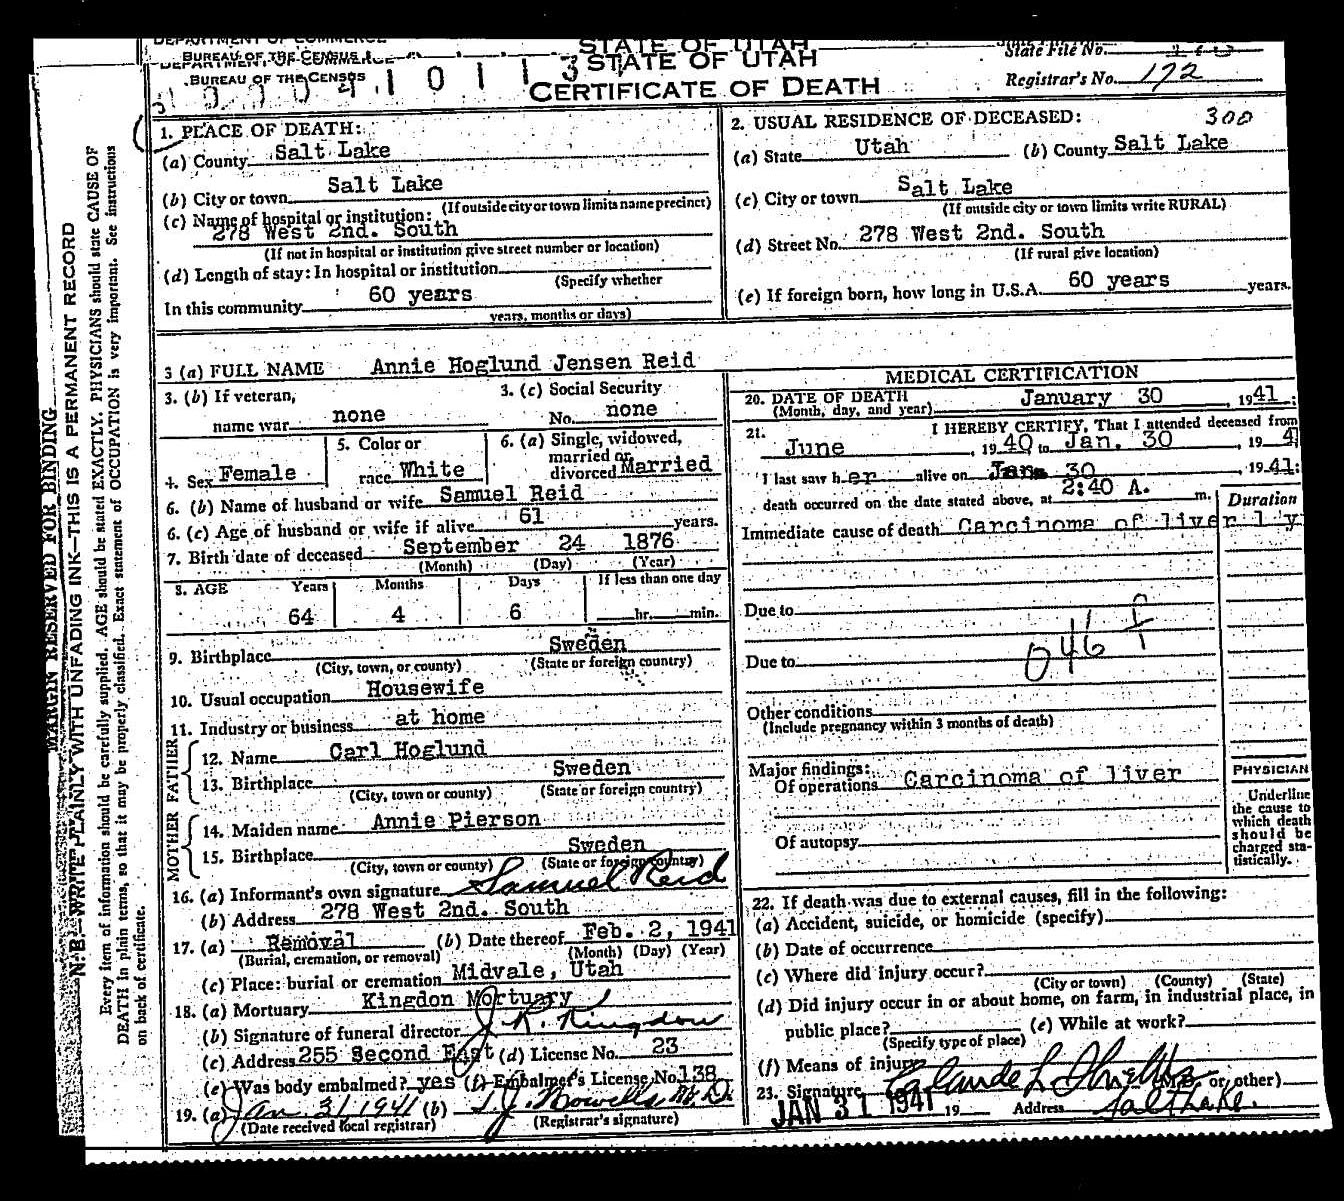 DEPARTMENT OF COMMERCE
BUREAU OF THE CENSUS
BUREAU OF THE CENSUS
STATE OF UTAH
STATE OF UTAH
CERTIFICATE OF DEATH
State File No.
Registrar's No. 172
1. PLACE OF DEATH:
(a) County Salt Lake
(b) City or town Salt Lake
(If outside city or town limits name precinct)
(c) Name of hospital or institution:
278 West 2nd. South
(If not in hospital or institution give street number or location)
(d) Length of stay: In hospital or institution
(Specify whether
In this community 60 years
years, months or days)
2. USUAL RESIDENCE OF DECEASED: 300
(a) State Utah (b) County Salt Lake
(c) City or town Salt Lake
(If outside city or town limits write RURAL)
(d) Street No. 278 West 2nd. South
(If rural give location)
(e) If foreign born, how long in U.S.A. 60 years years.
3 (a) FULL NAME Annie Hoglund Jensen Reid
3. (b) If veteran,
name war none
3. (c) Social Security
No. none
4. Sex Female
5. Color or
race White
6. (a) Single, widowed,
married or
divorced Married
6. (b) Name of husband or wife Samuel Reid
6. (c) Age of husband or wife if alive 61 years.
7. Birth date of deceased September 24 1876
(Month) (Day) (Year)
8. AGE Years Months Days If less than one day
64 4 6 hr. min.
9. Birthplace Sweden
(City, town, or county) (State or foreign country)
10. Usual occupation Housewife
11. Industry or business at home
FATHER
12. Name Carl Hoglund
13. Birthplace Sweden
(City, town or county) (State or foreign country)
MOTHER
14. Maiden name Annie Pierson
15. Birthplace Sweden
(City, town or county) (State or foreign country)
16. (a) Informant's own signature Samuel Reid
(b) Address 278 West 2nd. South
17. (a) Removal (b) Date thereof Feb. 2, 1941
(Burial, cremation, or removal) (Month) (Day) (Year)
(c) Place: burial or cremation Midvale, Utah
18. (a) Mortuary Kingdon Mortuary
(b) Signature of funeral director J. R. Kingdon
(c) Address 255 Second East (d) License No. 23
(e) Was body embalmed? yes (f) Embalmer's License No. 138
19. (a) Jan 31 1941 (b)
(Date received local registrar) (Registrar's signature)
MEDICAL CERTIFICATION
20. DATE OF DEATH
(Month, day, and year) January 30, 1941;
21. I HEREBY CERTIFY, That I attended deceased from
June, 1940 to Jan. 30, 194
I last saw h er alive on Jan. 30, 1941;
death occurred on the date stated above, at 2:40 A. m.
Duration
Immediate cause of death Carcinoma of liver 1 y
Due to
Due to
046
Other conditions
(Include pregnancy within 3 months of death)
Major findings:
Of operations Carcinoma of liver
Of autopsy
PHYSICIAN
Underline
the cause to
which death
should be
charged sta-
tistically.
22. If death was due to external causes, fill in the following:
(a) Accident, suicide, or homicide (specify)
(b) Date of occurrence
(c) Where did injury occur?
(City or town) (County) (State)
(d) Did injury occur in or about home, on farm, in industrial place, in
public place? (e) While at work?
(Specify type of place)
(f) Means of injury
23. Signature (M.D. or other)
JAN 31 1941 19 Address Salt Lake.
MARGIN RESERVED FOR BINDING
N. B.—WRITE PLAINLY WITH UNFADING INK—THIS IS A PERMANENT RECORD
Every item of information should be carefully supplied. AGE should be stated EXACTLY. PHYSICIANS should state CAUSE OF
DEATH in plain terms, so that it may be properly classified. Exact statement of OCCUPATION is very important. See instructions
on back of certificate.